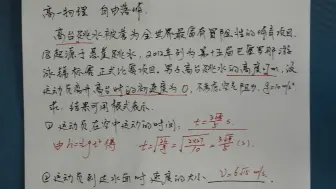 高一物理 自由落体
高台跳水被誉为全世界最富有冒险性的体育项目
它起源于悬崖跳水,2012年列为第十五届巴塞罗那游
泳锦标赛正式比赛项目。男子高台跳水的高度27m,设
运动员离开高台时的初速度为0,不考虑空气阻力,g=10m/s²
求:结果可用根式表示。
① 运动员在空中运动的时间: t=3√15/5 s.
由h=½gt²得 t=√(2h/g)=√(2×27/10)=3√15/5(s).
② 运动员到达水面时速度的大小 v=6√15 m/s.